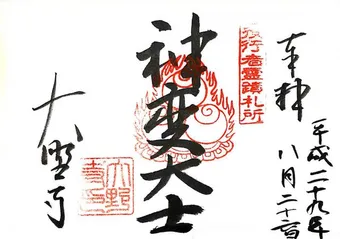 奉拝
平成二十九年
八月二十六日
役行者霊蹟札所
神変大士
大野寺